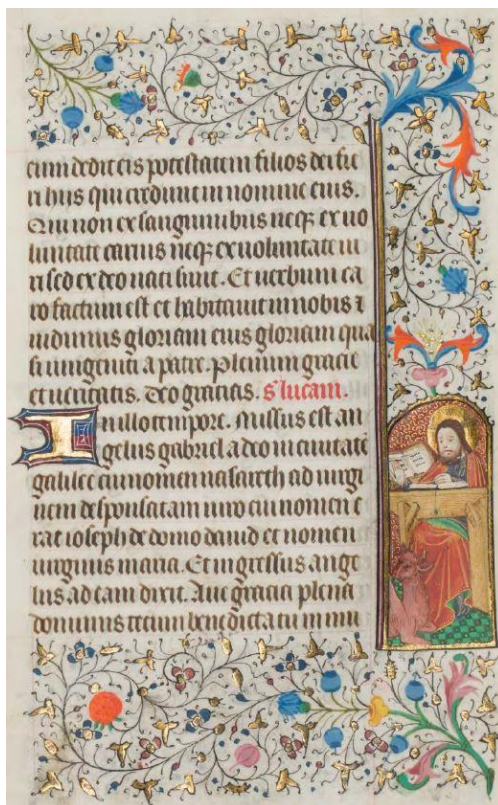 eum dedit eis potestatem filios dei fie
ri hiis qui credunt in nomine eius.
Qui non ex sanguinibus neqꝫ ex uo
luntate carnis neqꝫ ex uoluntate ui
ri sed ex deo nati sunt. Et uerbum ca
ro factum est et habitauit in nobis ⁊
uidimus gloriam eius gloriam qua
si unigeniti a patre. plenum gracie
et ueritatis. Deo gracias. S lucam.
In illo tempore. Missus est an
gelus gabriel a deo in ciuitate
galilee cui nomen nasareth ad uirgi
nem desponsatam uiro cui nomen e
rat ioseph de domo dauid et nomen
uirginis maria. Et ingressus ange
lus ad eam dixit. Aue gracia plena
dominus tecum benedicta tu in mu